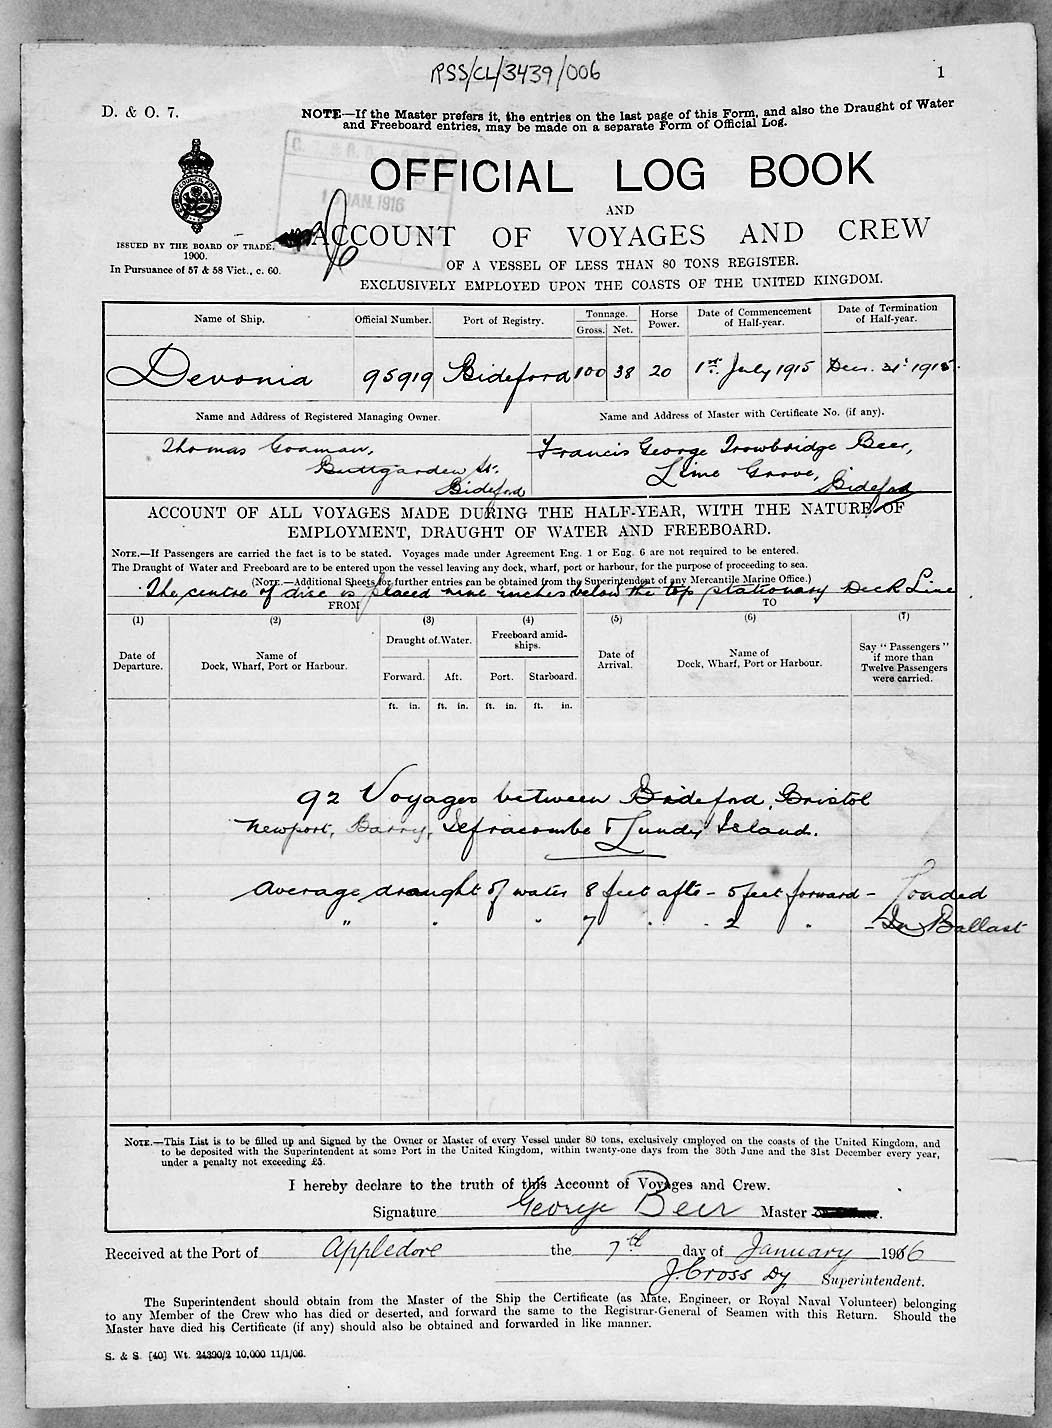 RSS/CL/3439/006
1
D. & O. 7.
NOTE—If the Master prefers it, the entries on the last page of this Form, and also the Draught of Water
and Freeboard entries, may be made on a separate Form of Official Log.
JAN. 1916
OFFICIAL LOG BOOK
AND
ACCOUNT OF VOYAGES AND CREW
OF A VESSEL OF LESS THAN 80 TONS REGISTER.
EXCLUSIVELY EMPLOYED UPON THE COASTS OF THE UNITED KINGDOM.
ISSUED BY THE BOARD OF TRADE.
1900.
In Pursuance of 57 & 58 Vict., c. 60.
Name of Ship. Official Number. Port of Registry. Tonnage. Gross. Net. Horse Power. Date of Commencement of Half-year. Date of Termination of Half-year.
Devonia 95919 Bideford 100 38 20 1st July 1915 Dec. 31st 1915.
Name and Address of Registered Managing Owner. Name and Address of Master with Certificate No. (if any).
Thomas Goaman, Francis George Trowbridge Beer,
Buttgarden St. Lime Grove,
Bideford Bideford
ACCOUNT OF ALL VOYAGES MADE DURING THE HALF-YEAR, WITH THE NATURE OF
EMPLOYMENT, DRAUGHT OF WATER AND FREEBOARD.
NOTE.—If Passengers are carried the fact is to be stated. Voyages made under Agreement Eng. 1 or Eng. 6 are not required to be entered.
The Draught of Water and Freeboard are to be entered upon the vessel leaving any dock, wharf, port or harbour, for the purpose of proceeding to sea.
(NOTE.—Additional Sheets for further entries can be obtained from the Superintendent of any Mercantile Marine Office.)
The centre of disc is placed nine inches below the top stationary Deck Line
FROM TO
(1) (2) (3) (4) (5) (6) (7)
Date of Departure. Name of Dock, Wharf, Port or Harbour. Draught of Water. Freeboard amidships. Date of Arrival. Name of Dock, Wharf, Port or Harbour. Say "Passengers" if more than Twelve Passengers were carried.
Forward. Aft. Port. Starboard.
ft. in. ft. in. ft. in. ft. in.
92 Voyages between Bideford, Bristol
Newport, Barry, Ilfracombe & Lundy Island.
Average draught of water 8 feet afts – 5 feet forward – Loaded
" " " 7 " " 2 " – In Ballast
NOTE.—This List is to be filled up and Signed by the Owner or Master of every Vessel under 80 tons, exclusively employed on the coasts of the United Kingdom, and
to be deposited with the Superintendent at some Port in the United Kingdom, within twenty-one days from the 30th June and the 31st December every year,
under a penalty not exceeding £5.
I hereby declare to the truth of this Account of Voyages and Crew.
Signature George Beer Master
Received at the Port of Appledore the 7th day of January 1916
J. Cross Dy Superintendent.
The Superintendent should obtain from the Master of the Ship the Certificate (as Mate, Engineer, or Royal Naval Volunteer) belonging
to any Member of the Crew who has died or deserted, and forward the same to the Registrar-General of Seamen with this Return. Should the
Master have died his Certificate (if any) should also be obtained and forwarded in like manner.
S. & S. [40] Wt. 24390/2 10,000 11/1/06.